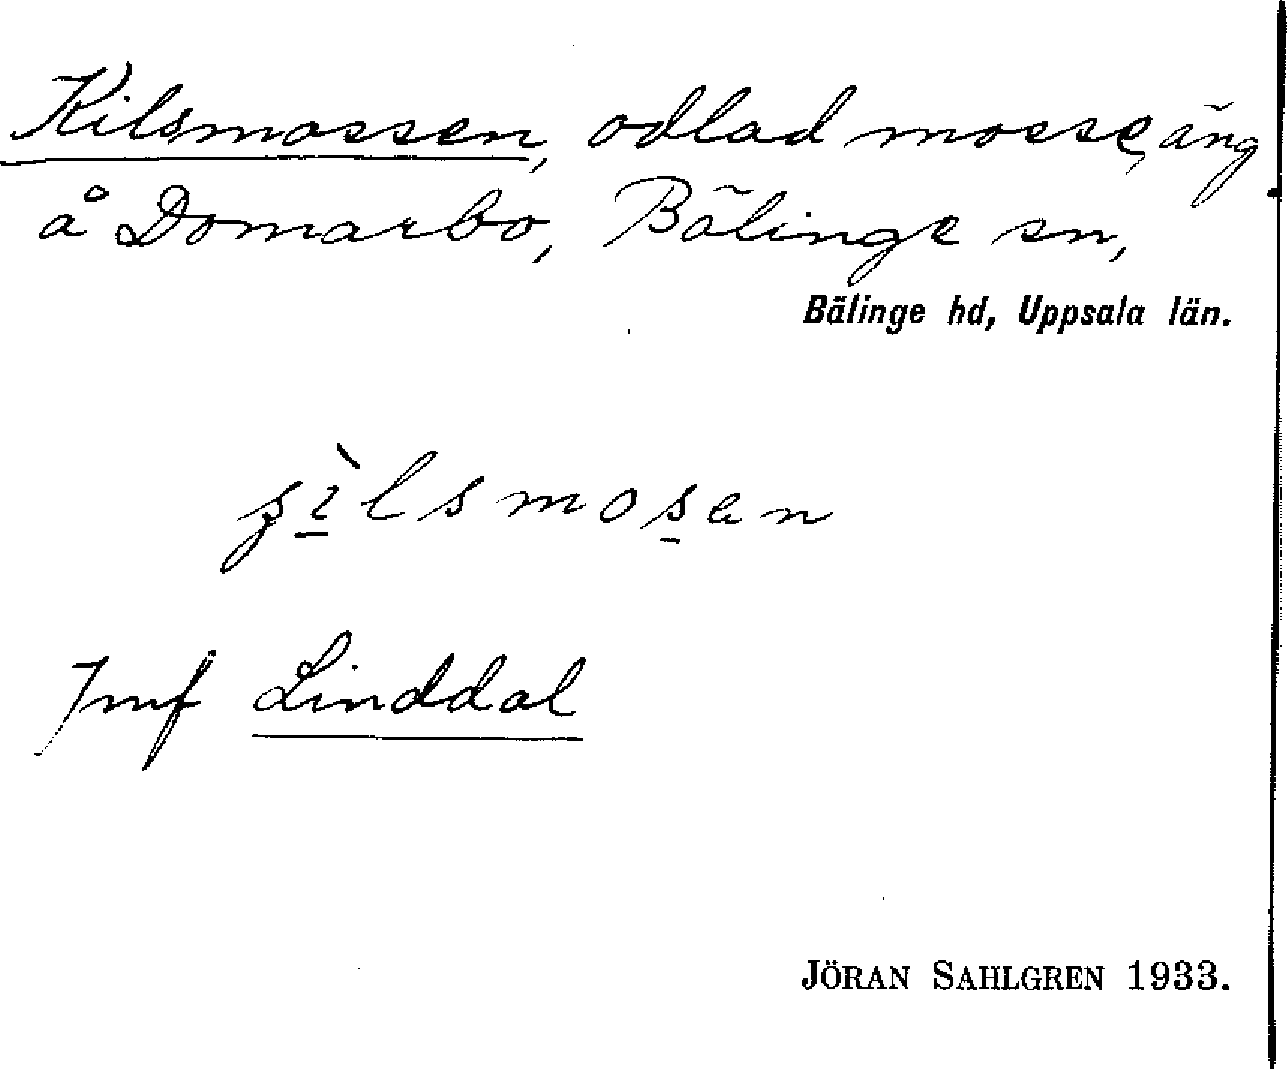 Kilsmossen, odlad mosse, äng
å Domarbo, Bälinge sn,
Bälinge hd, Uppsala län.
Jmf Linddal
JÖRAN SAHLGREN 1933.